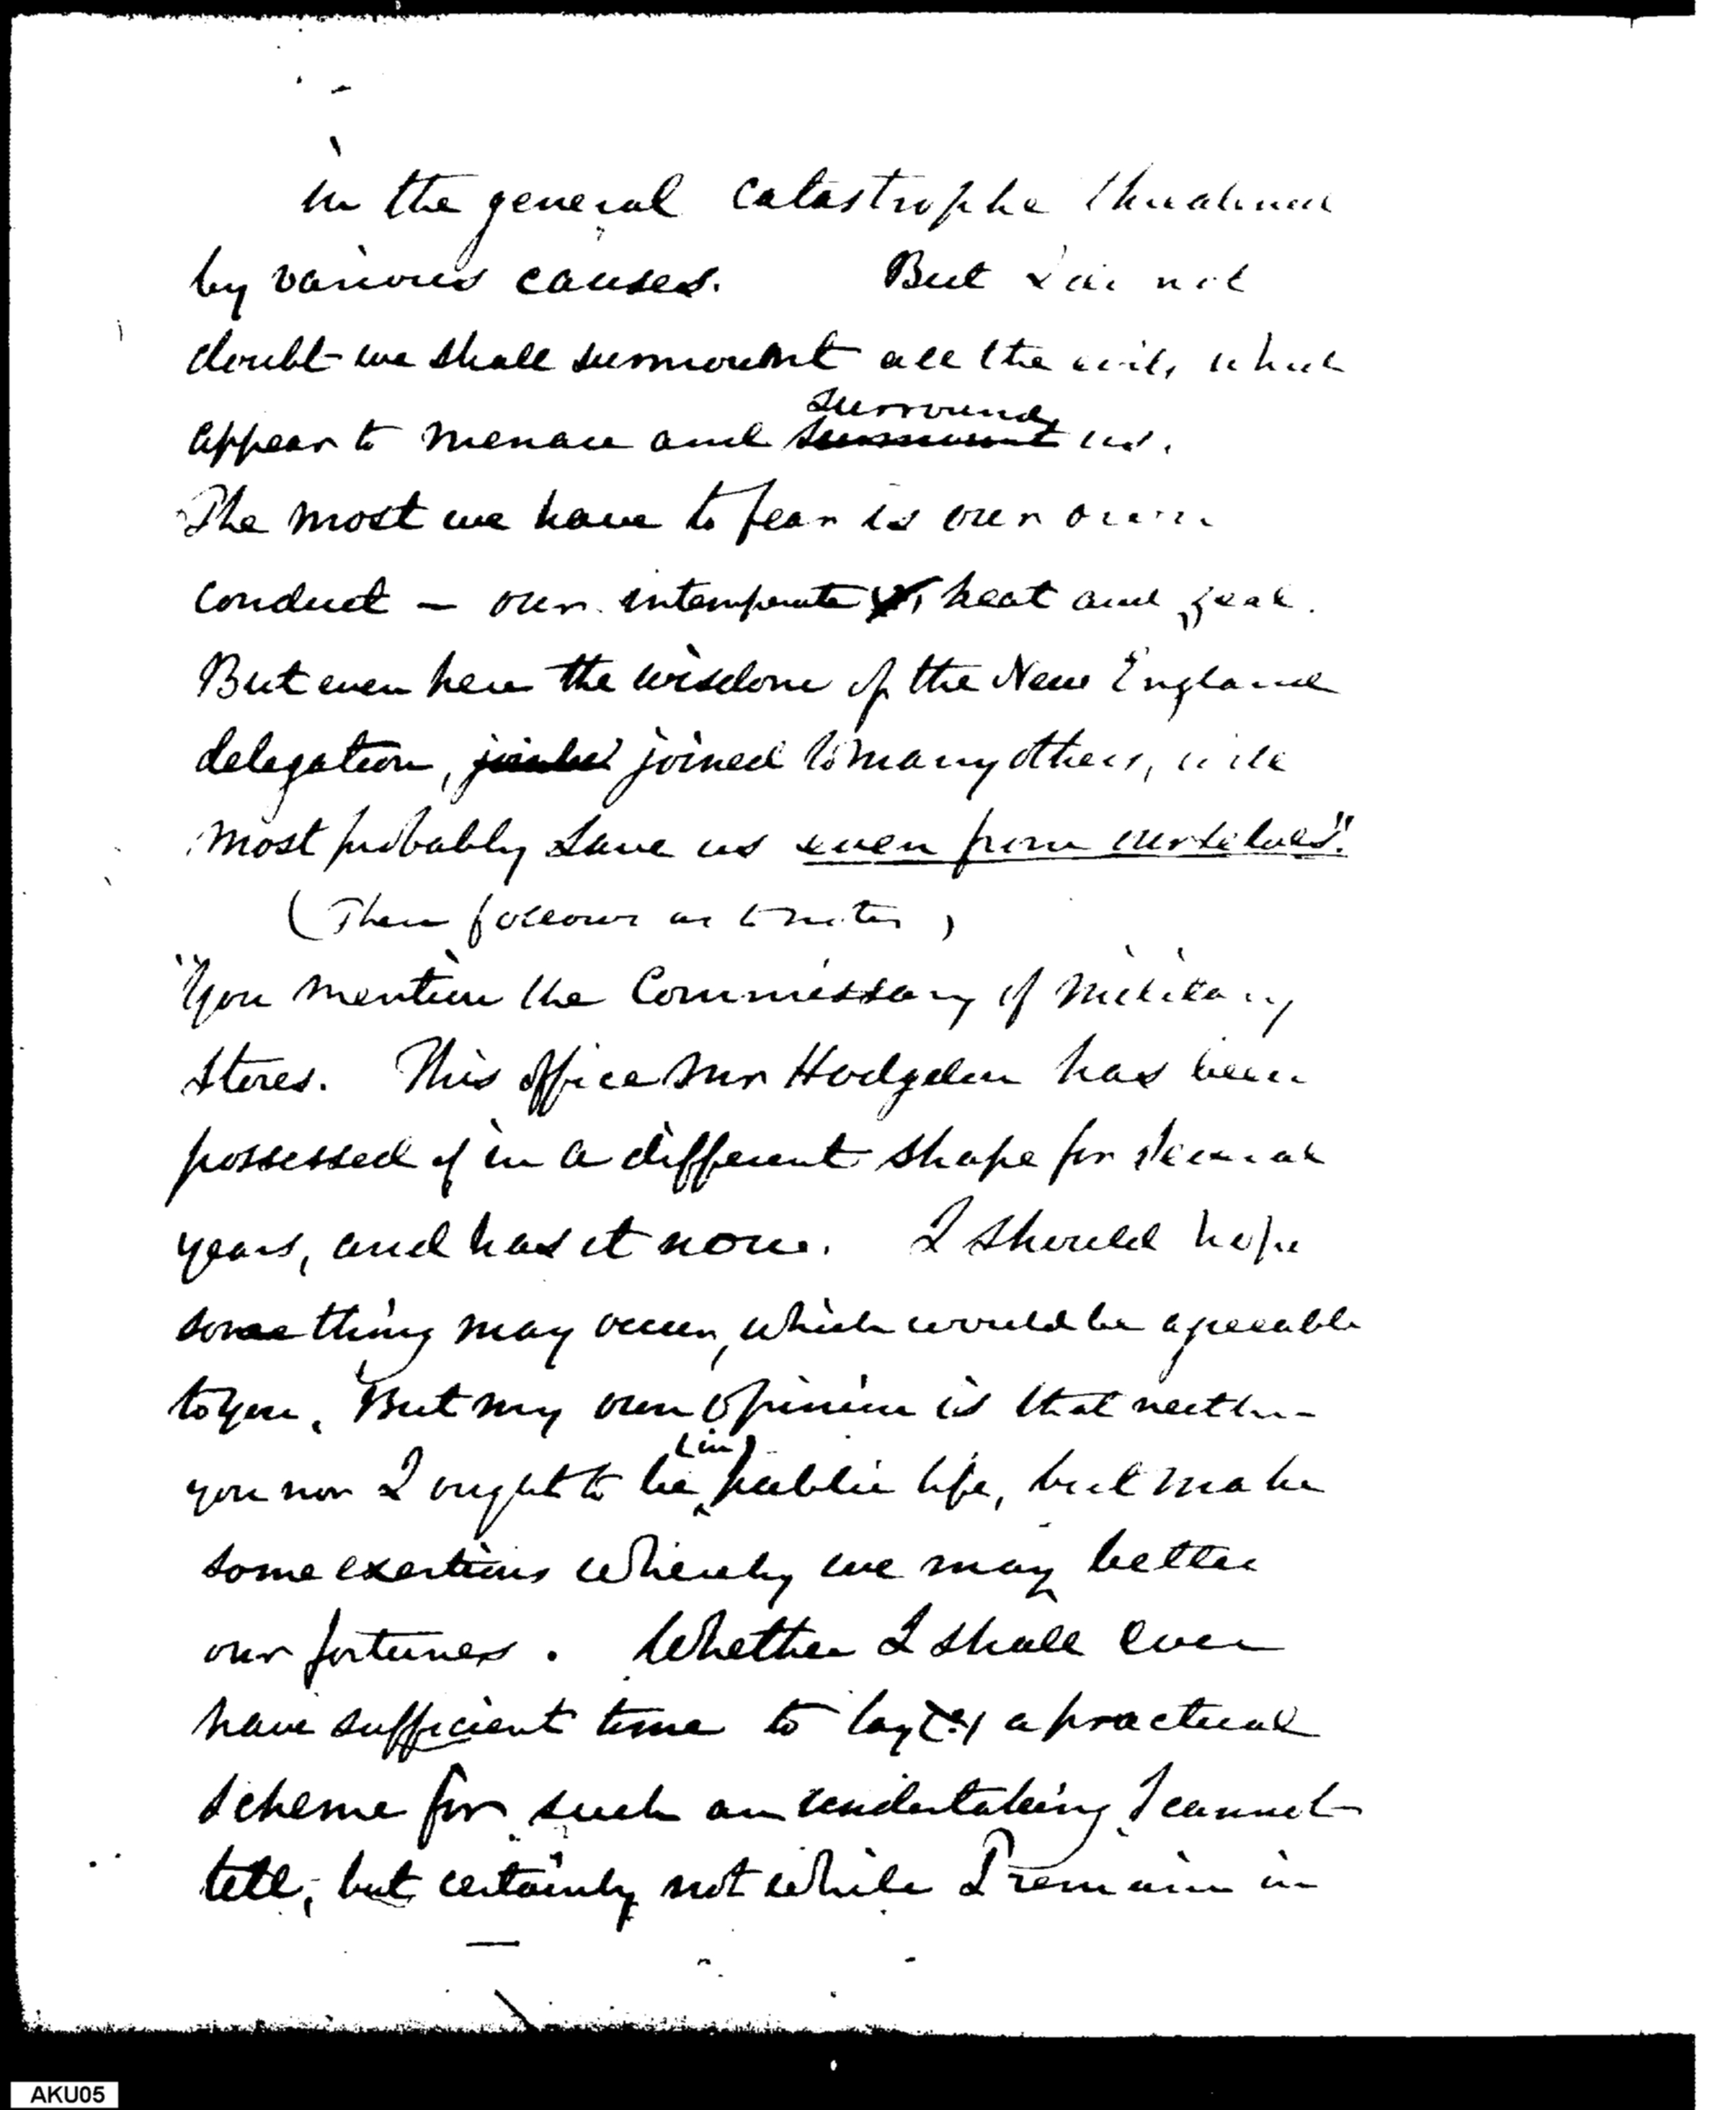 in the general catastrophe threatened
by various causes. But I do not
doubt we shall surmount all the evils which
appear to menace and ~~surmount~~ surround us.
The most we have to fear is our own
conduct — our intemperate heat and zeal.
But even here the wisdom of the New England
delegation, joined to many others, will
most probably save us even from ourselves".
(Then follows as to
"You mention the Commissary of Military
Stores. This office Mr Hodgdon has been
possessed of in a different shape for several
years, and has it now. I should hope
something may occur, which would be agreeable
to you. But my own opinion is that neither
you nor I ought to be (in) public life, but make
some exertions whereby we may better
our fortunes. Whether I shall ever
have sufficient time to lay (?) a practical
scheme for such an undertaking I cannot
tell; but certainly not while I remain in
AKU05